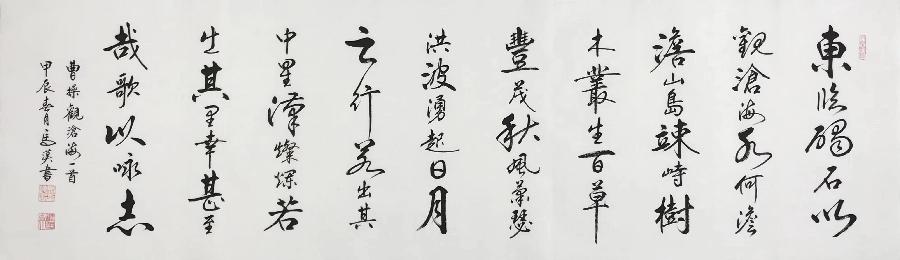 東臨碣石以
觀滄海水何澹
澹山島竦峙樹
木叢生百草
豐茂秋風蕭瑟
洪波湧起日月
之行若出其
中星漢燦爛若
出其里幸甚至
哉歌以咏志
曹操觀滄海一首
甲辰春月書